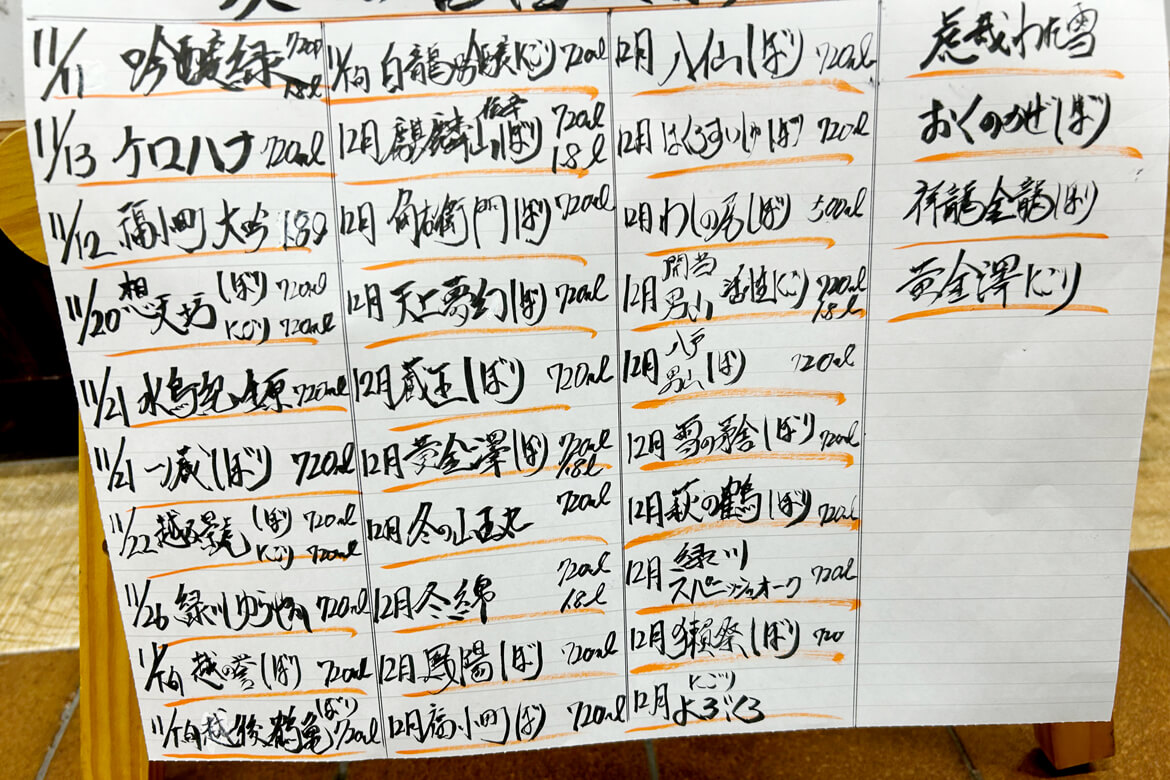 11/11 吟醸緑 720ml 1.8l
11/13 ケロハナ 720ml
11/12 福小町 大吟 1.8l
11/20 想天坊 しぼり 720ml
にごり 720ml
11/21 水鳥記 生原 720ml
11/21 一ノ蔵 しぼり 720ml
11/22 越乃景虎 しぼり 720ml
にごり 720ml
11/26 緑川 ゆうやけ 720ml
11/下旬 越の誉 しぼり 720ml
11/下旬 越後鶴亀 しぼり 720ml
11/下旬 白龍 吟醸にごり 720ml
12月 麒麟山 伝辛 しぼり 720ml 1.8l
12月 角右衛門 しぼり 720ml
12月 天上夢幻 しぼり 720ml
12月 蔵王 しぼり 720ml
12月 黄金澤 しぼり 720ml 1.8l
12月 冬の山王丸 720ml
12月 冬綿 720ml 1.8l
12月 鳳陽 しぼり 720ml
12月 福小町 しぼり 720ml
12月 八仙 しぼり 720ml
12月 はくろすいしゅ しぼり 720ml
12月 わしの尾 しぼり 500ml
12月 開当男山 活性にごり 720ml 1.8l
12月 八戸男山 しぼり 720ml
12月 雪の茅舎 しぼり 720ml
12月 萩の鶴 しぼり 720ml
12月 緑川
スパニッシュオーク 720ml
12月 獺祭 しぼり 720
12月 よろこぶ にごり
おくのかぜ しぼり
祥龍金龍 しぼり
黄金澤 にごり